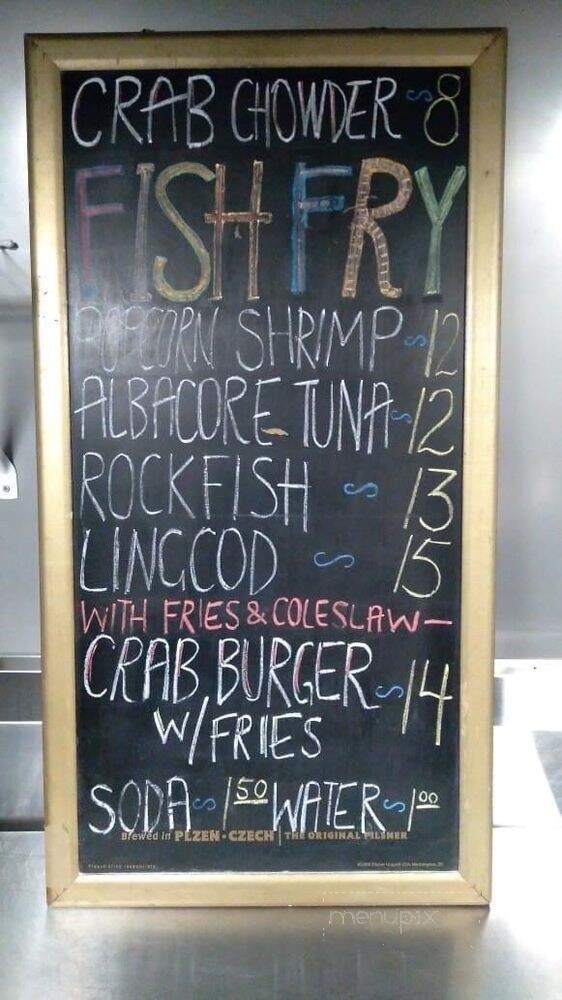 CRAB CHOWDER $8
FISH FRY
POPCORN SHRIMP $12
ALBACORE TUNA $12
ROCKFISH $ 13
LINGCOD $ 15
WITH FRIES & COLESLAW—
CRAB BURGER $14
W/FRIES
SODA $1 50 WATER $1 00
Brewed in PLZEN • CZECH | THE ORIGINAL PILSNER
menupix